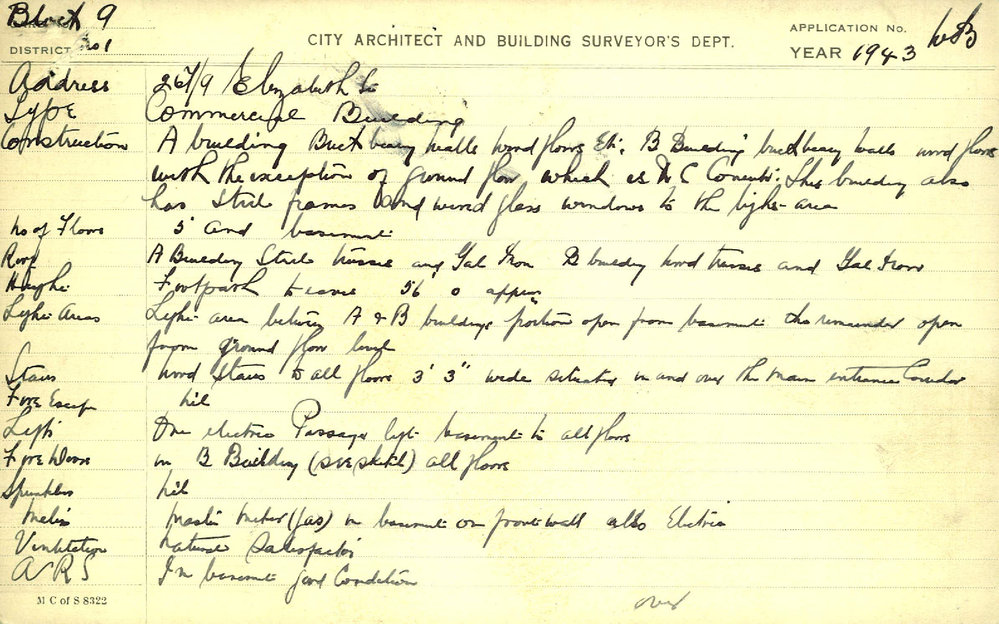 Block 9
DISTRICT No 1
CITY ARCHITECT AND BUILDING SURVEYOR'S DEPT.
APPLICATION No.
YEAR 1943
Address 267/9 Elizabeth St
Type Commercial Building
Construction A building Brick heavy walls wood floors Etc. B Building brick heavy walls wood floors
with the exception of ground floor which is R C Concrete. This building also
has steel frames and wired glass windows to the light area
No of Floors 5 and basement
Roof A Building Steel trusses and Gal Iron B building wood trusses and Gal Iron
Height Footpath to eaves 56 0 approx
Light Areas Light area between A & B buildings portion open from basement the remainder open
from ground floor level
Stairs wood stairs to all floors 3' 3" wide situated in and over the main entrance Corridor
Fire Escape nil
Lifts One electric Passenger lift basement to all floors
Fire Doors in B Building (see sketch) all floors
Sprinklers nil
Meters Master Meter (gas) in basement on front wall also Electric
Ventilation natural Satisfactory
A R S In basement good Condition
M C of S 8322
over